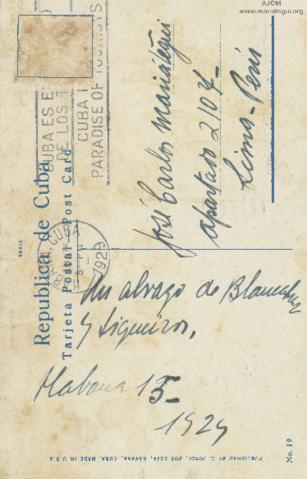 AJCM
www.mariategui.org
CUBA ES E
DE LOS T
CUBA
PARADISE OF TOURISTS
Republica de Cuba
Tarjeta Postal Post Card
CUBA
1929
José Carlos Mariátegui
apartado 2107
Lima - Perú
Un abrazo de Blanca Luz
y Siqueiros.
Habana 15-
1929
No. 19
PUBLISHED BY C. JORDI, BOX HAVANA, CUBA. MADE IN U S A